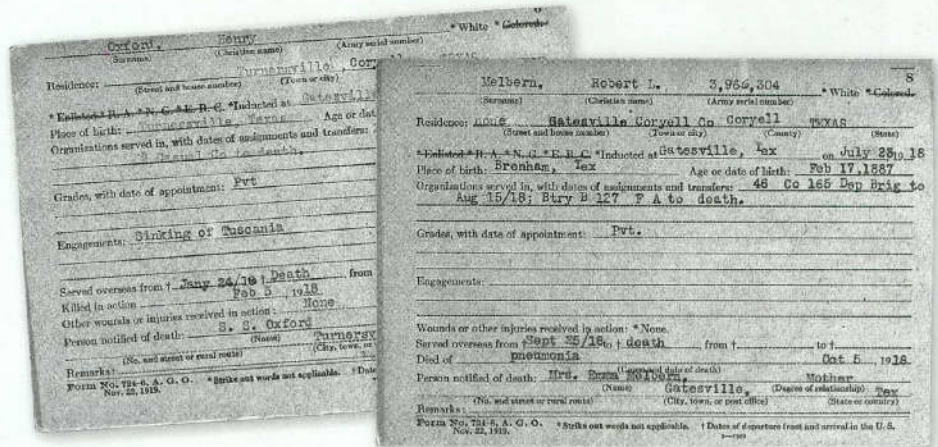 Oxford, Henry * White * Colored.
(Surname) (Christian name) (Army serial number)
Residence: Turnersville, Cory
(Street and house number) (Town or city)
* Enlisted * R. A. * N. G. * E. R. C. *Inducted at Gatesville
Place of birth: Turnersville, Texas Age or dat
Organizations served in, with dates of assignments and transfers:
Casual Co to death.
Grades, with date of appointment: Pvt
Engagements: Sinking of Tuscania
Served overseas from † Jany 24/18 † Death from
Killed in action Feb 5, 1918
Other wounds or injuries received in action: None
Person notified of death: S. S. Oxford
(Name) Turnersv
(No. and street or rural route) (City, town, or
Remarks:
Form No. 724-6, A. G. O. * Strike out words not applicable. † Date
Nov. 22, 1919.
8
Melbern, Robert L. 3,966,304 * White * Colored.
(Surname) (Christian name) (Army serial number)
Residence: none Gatesville Coryell Co Coryell TEXAS
(Street and house number) (Town or city) (County) (State)
* Enlisted * R. A. * N. G. * E. R. C. *Inducted at Gatesville, Tex on July 23 1918
Place of birth: Brenham, Tex Age or date of birth: Feb 17,1887
Organizations served in, with dates of assignments and transfers: 46 Co 165 Dep Brig to
Aug 15/18; Btry B 127 F A to death.
Grades, with date of appointment: Pvt.
Engagements:
Wounds or other injuries received in action: * None.
Served overseas from † Sept 25/18 to † death from † to †
Died of pneumonia Oct 5 1918
(Cause and date of death)
Person notified of death: Mrs. Emma Melbern, Mother
(Name) Gatesville, (Degree of relationship) Tex
(No. and street or rural route) (City, town, or post office) (State or country)
Remarks:
Form No. 724-6, A. G. O. * Strike out words not applicable. † Dates of departure from and arrival in the U. S.
Nov. 22, 1919.